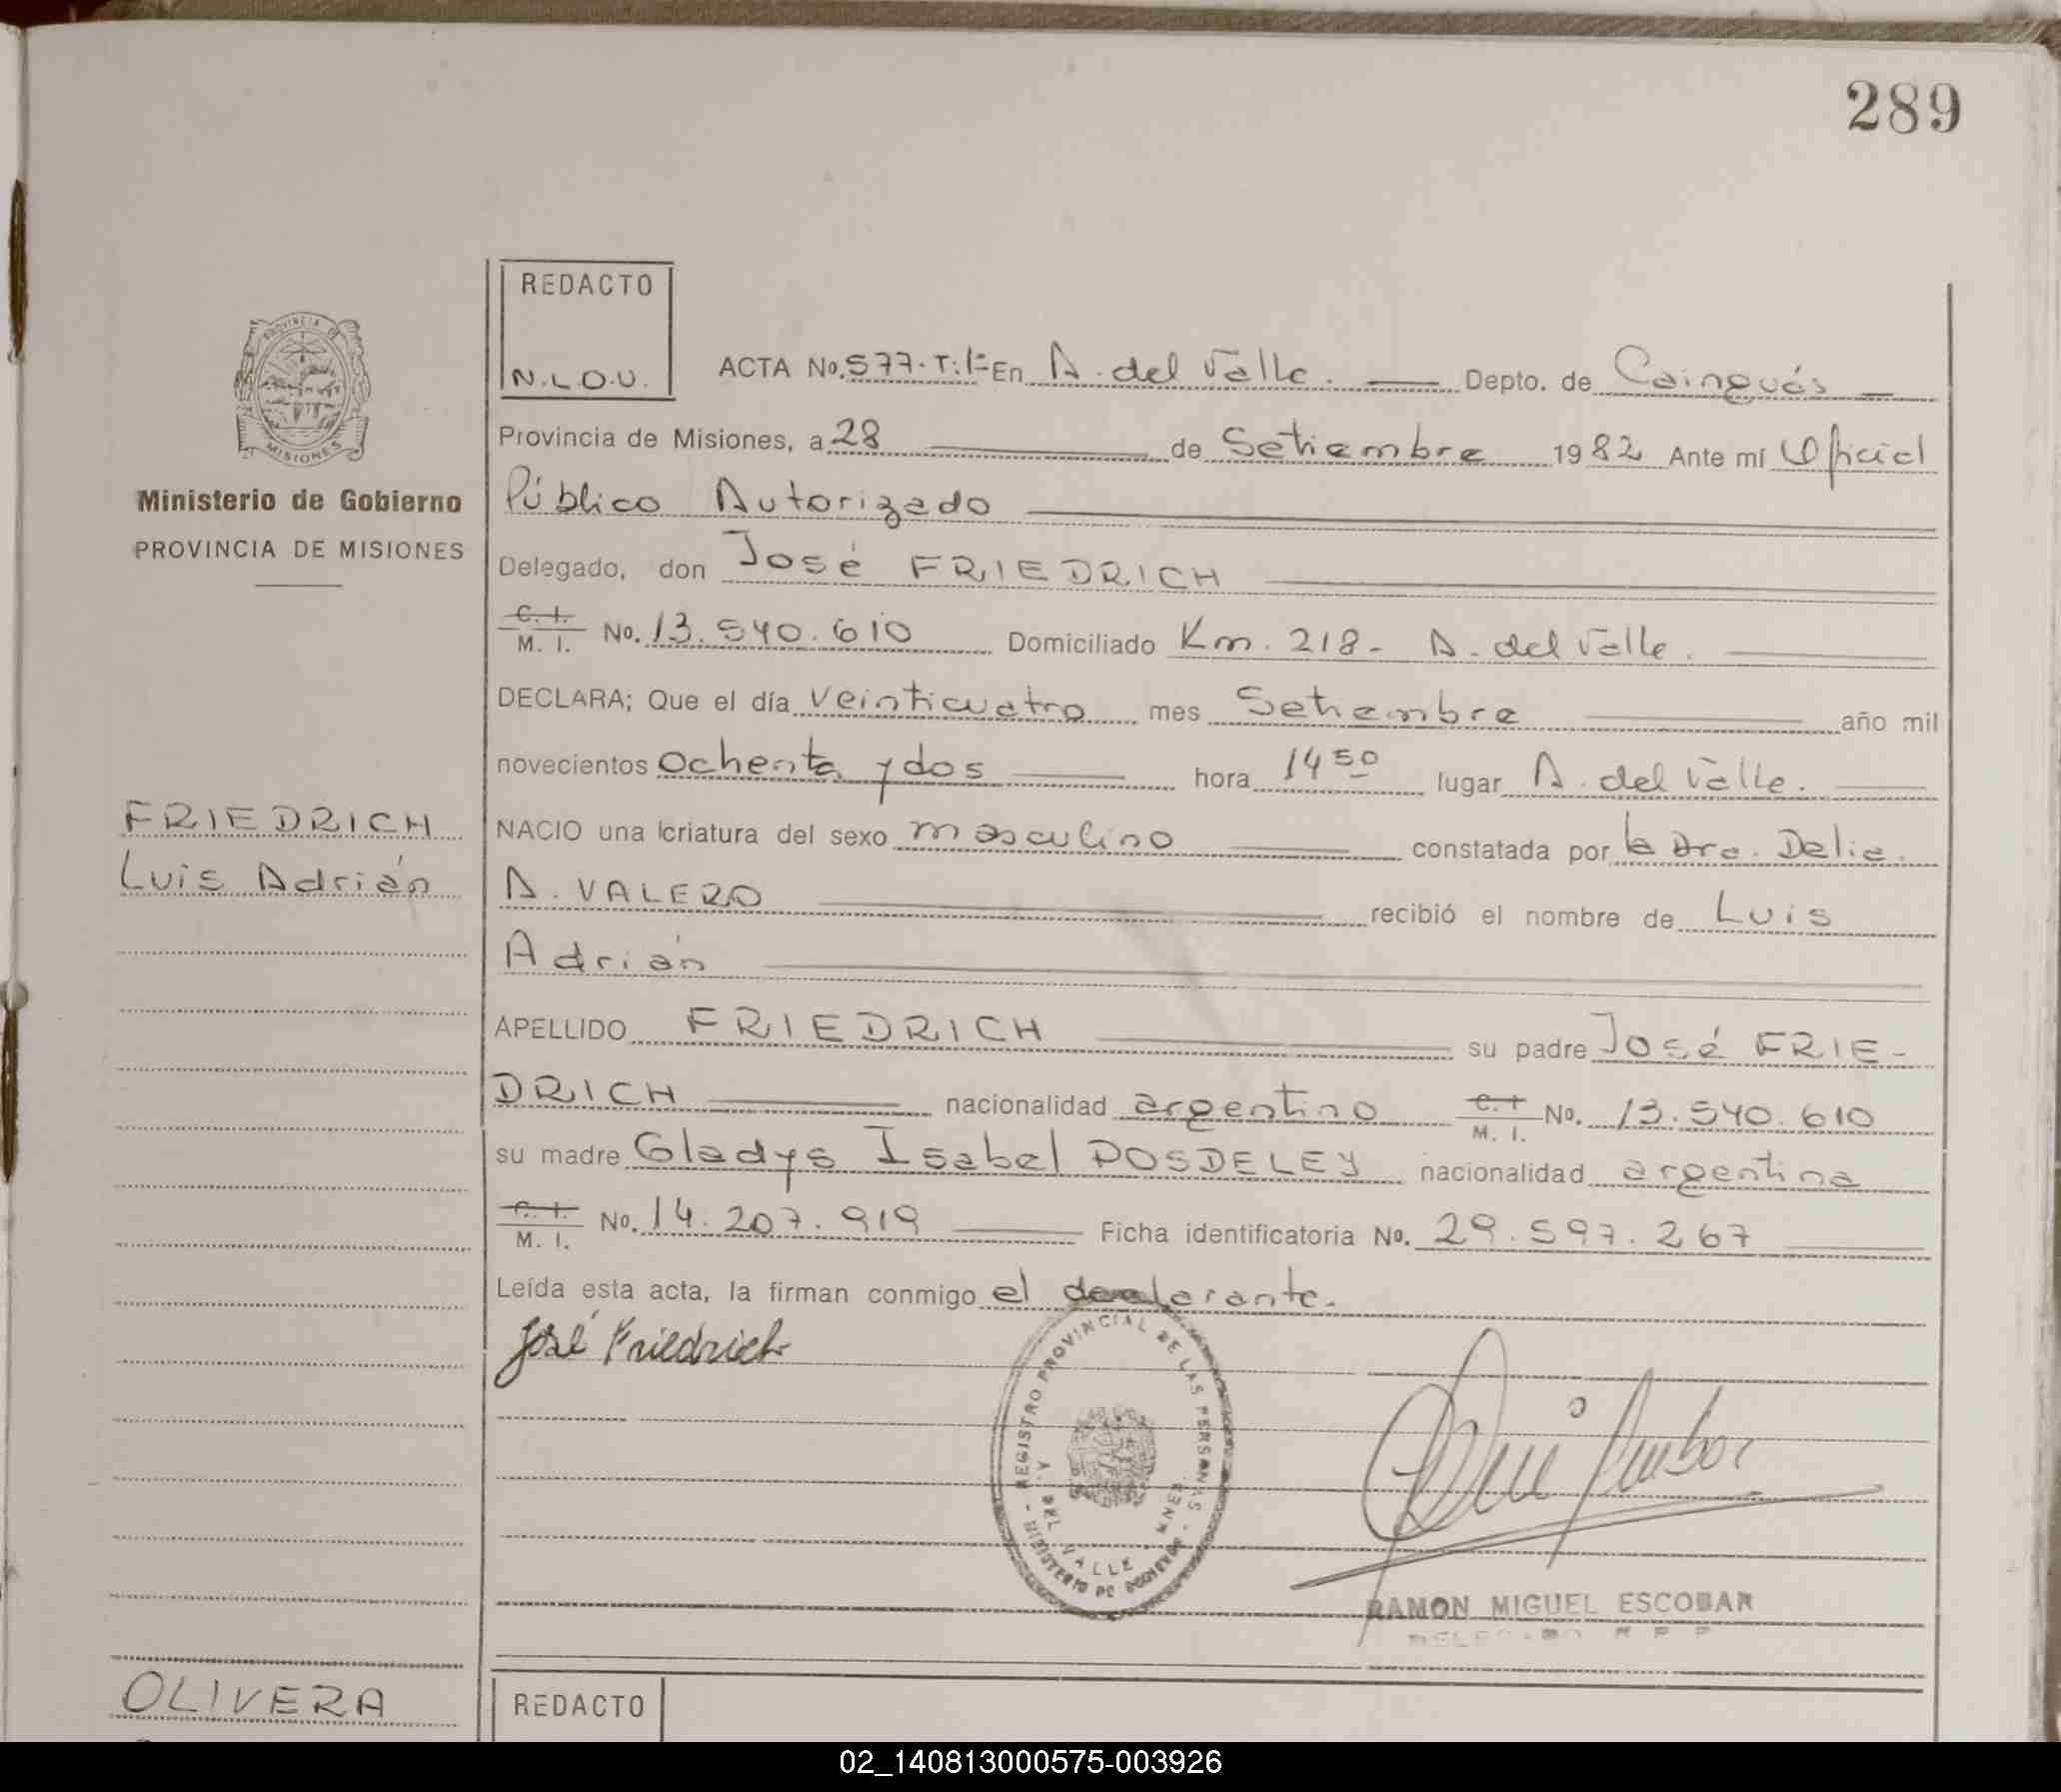 289
REDACTO
N.L.O.U.
ACTA No. 577.T:1= En A. del Valle. Depto. de Cainguás
Provincia de Misiones, a 28 de Setiembre 1982 Ante mí Oficial
Público Autorizado
Delegado, don José FRIEDRICH
C. I. M. I. No. 13.540.610 Domiciliado Km. 218- A. del Valle.
DECLARA; Que el día veinticuatro mes Setiembre año mil
novecientos ochenta y dos hora 14 50 lugar A. del Valle.
NACIO una criatura del sexo masculino constatada por la Dra. Delia.
A. VALERO recibió el nombre de Luis
Adrián
APELLIDO FRIEDRICH su padre José FRIE-
DRICH nacionalidad argentino C. I. M. I. No. 13.540.610
su madre Gladys Isabel POSDELEY nacionalidad argentina
C. I. M. I. No. 14.207.919 Ficha identificatoria No. 29.597.267
Leída esta acta, la firman conmigo el declarante.
José Friedrich
REGISTRO PROVINCIAL DE LAS PERSONAS
MINISTERIO DE GOBIERNO
DEL VALLE
RAMON MIGUEL ESCOBAR
DELEGADO R P P
PROVINCIA DE
MISIONES
Ministerio de Gobierno
PROVINCIA DE MISIONES
FRIEDRICH
Luis Adrián
OLIVERA
REDACTO
02_140813000575-003926